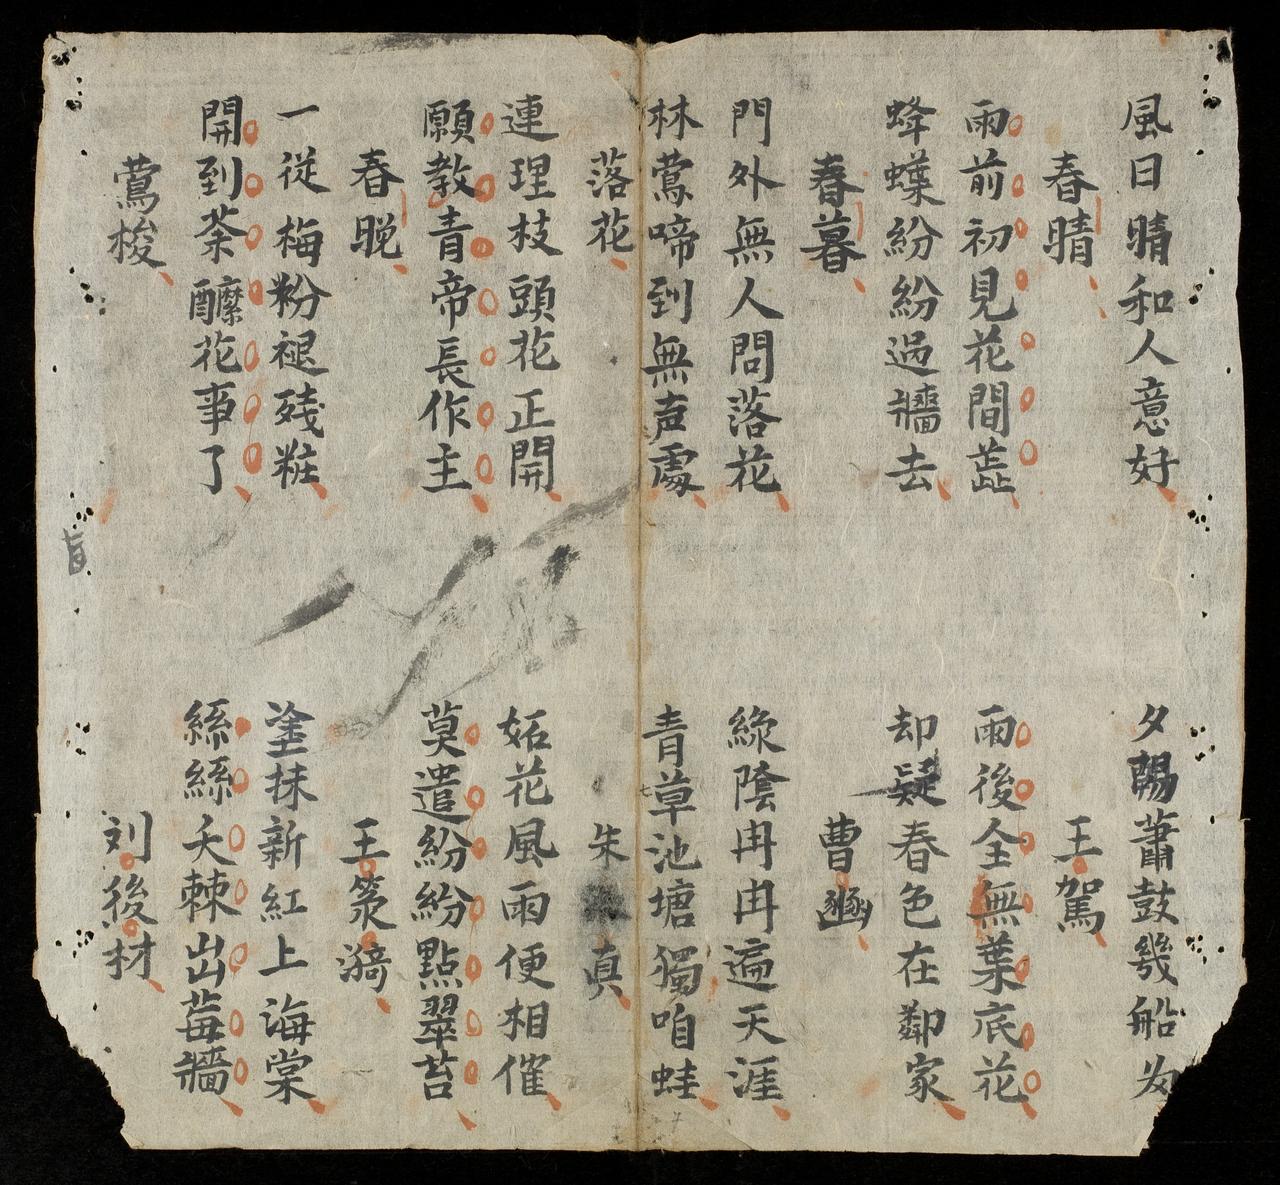 風日晴和人意好 夕陽蕭鼓幾船
春晴 王駕
雨前初見花間蕋 雨後全無葉底花
蜂蝶紛紛過牆去 却疑春色在鄰家
春暮 曹豳
門外無人問落花 綠陰冉冉遍天涯
林鶯啼到無声處 青草池塘獨咱蛙
落花 朱 真
連理枝頭花正開 妬花風雨便相催
願教青帝長作主 莫遣紛紛點翠苔
春晚 王
一從梅粉褪残粧 塗抹新紅上海棠
開到荼醾花事了 絲絲夭棘出莓牆
鶯梭 刘後材